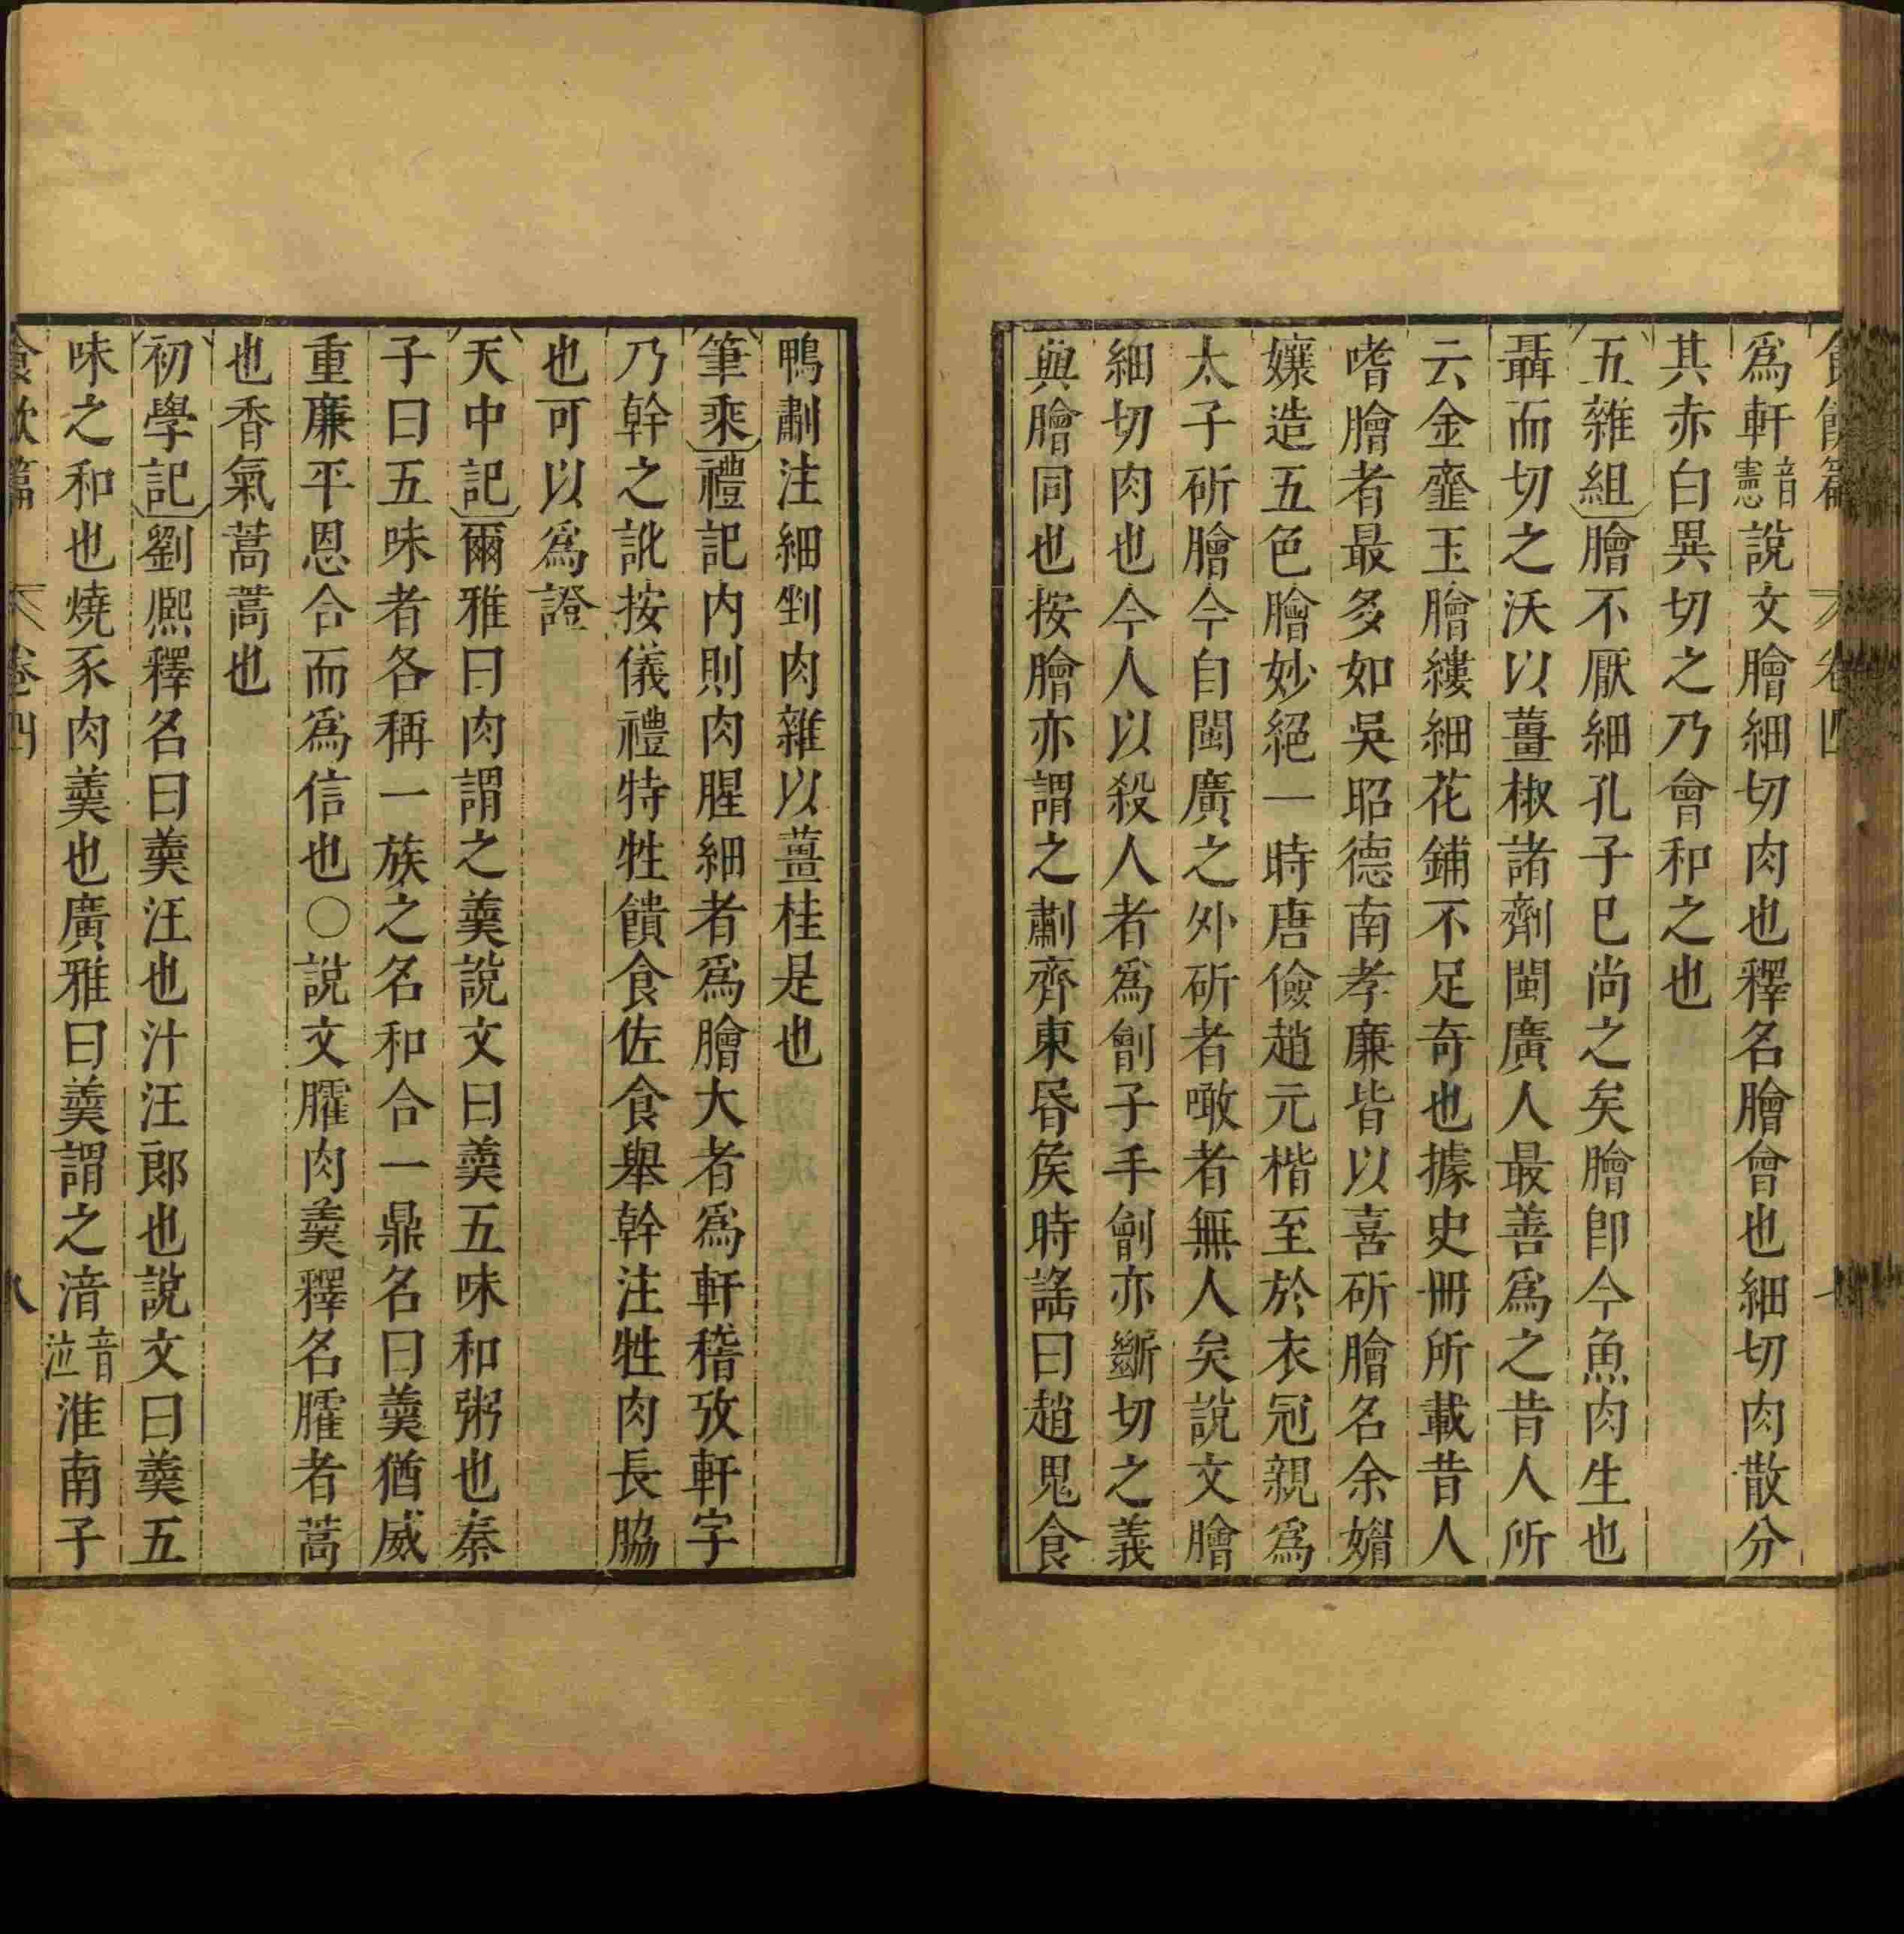 爲軒音憲說文膾細切肉也釋名膾會也細切肉散分
其赤白異切之乃會和之也
五雜組膾不厭細孔子巳尚之矣膾卽今魚肉生也
聶而切之沃以薑椒諸劑閩廣人最善爲之昔人所
云金虀玉膾縷細花鋪不足奇也據史冊所載昔人
嗜膾者最多如吳昭德南孝廉皆以喜斫膾名余媚
孃造五色膾妙絕一時唐儉趙元楷至於衣冠親爲
太子斫膾今自閩廣之外斫者噉者無人矣說文膾
細切肉也今人以殺人者爲劊子手劊亦斷切之義
與膾同也按膾亦謂之劀齊東昏矦時謠曰趙鬼食
鴨劀注細剉肉雜以薑桂是也
筆乘禮記内則肉腥細者爲膾大者爲軒稽攷軒字
乃幹之訛按儀禮特牲饋食佐食舉幹注牲肉長脇
也可以爲證
天中記爾雅曰肉謂之羹說文曰羹五味和粥也秦
子曰五味者各稱一族之名和合一鼎名曰羹猶威
重廉平恩合而爲信也○說文臛肉羹釋名臛者蒿
也香氣蒿蒿也
初學記劉熈釋名曰羹汪也汁汪郎也說文曰羹五
味之和也燒豕肉羹也廣雅曰羹謂之湆音泣淮南子
卷四